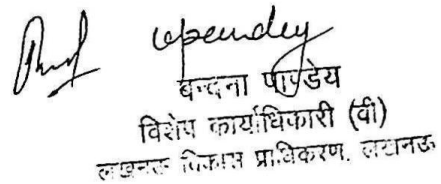 बन्दना पाण्डेय
विशेष कार्याधिकारी (वी)
लखनऊ विकास प्राधिकरण, लखनऊ